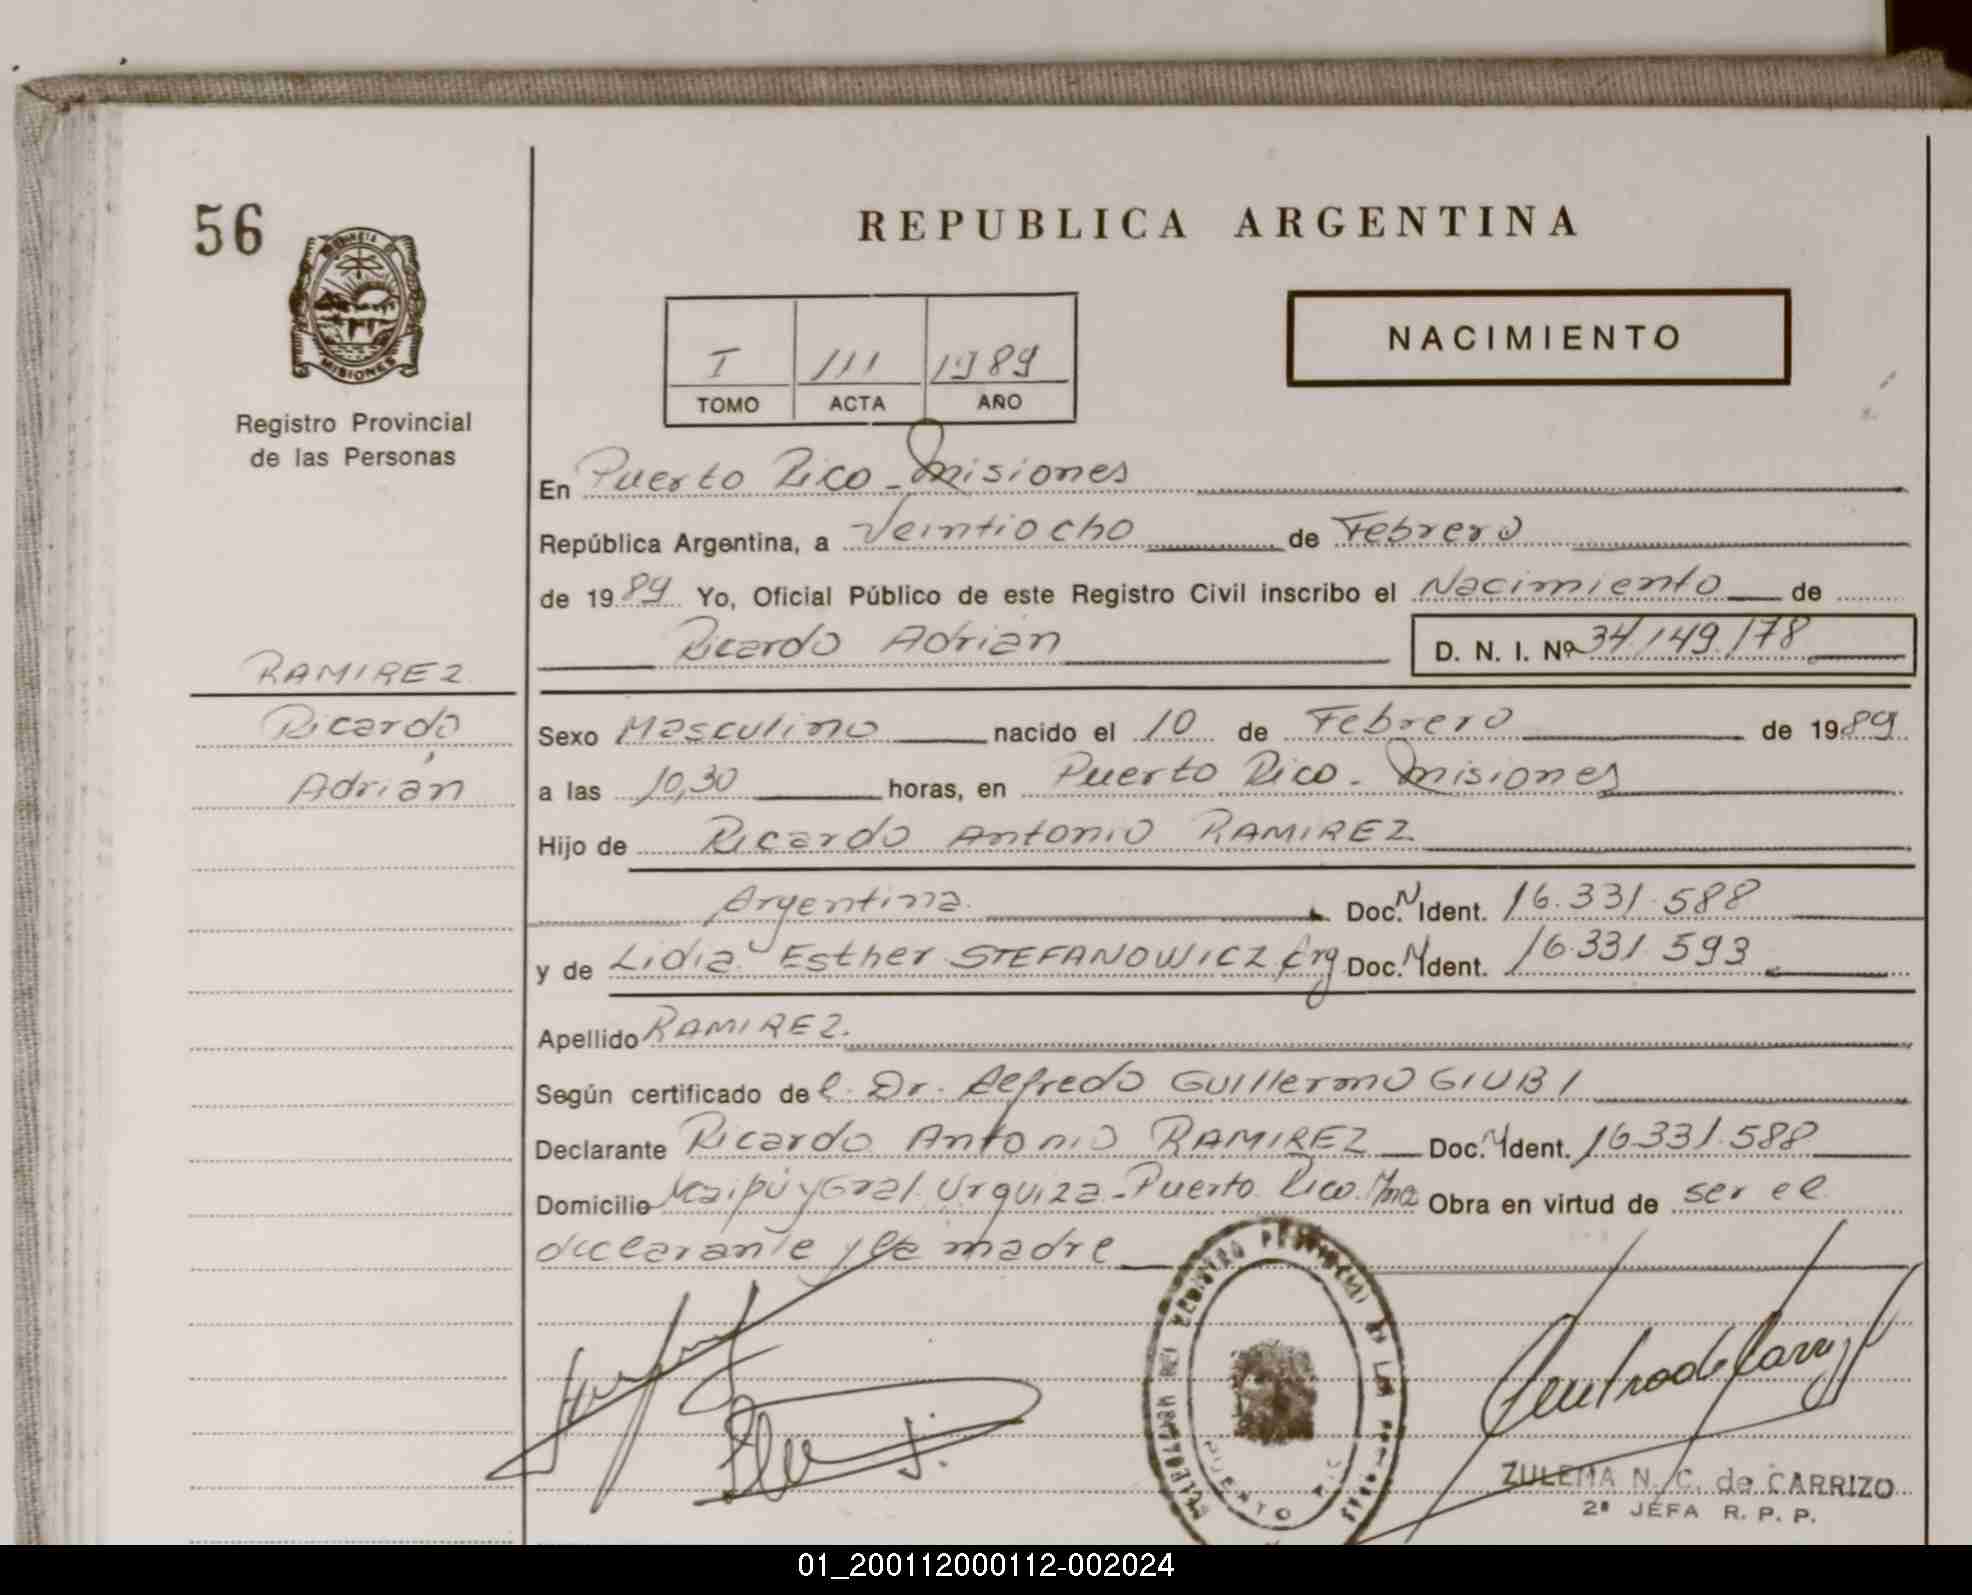 56
REPUBLICA ARGENTINA
MISIONES
Registro Provincial
de las Personas
I 111 1989
TOMO ACTA AÑO
NACIMIENTO
En Puerto Rico - Misiones
República Argentina, a Veintiocho de Febrero
de 1989 Yo, Oficial Público de este Registro Civil inscribo el Nacimiento de
Ricardo Adrián
D. N. I. Nº 34.149.178
RAMIREZ
Ricardo
Adrián
Sexo Masculino nacido el 10 de Febrero de 1989
a las 10,30 horas, en Puerto Rico - Misiones
Hijo de Ricardo Antonio RAMIREZ
Argentina. Doc. N Ident. 16.331.588
y de Lidia Esther STEFANOWICZ Arg Doc. N Ident. 16.331.593
Apellido RAMIREZ.
Según certificado del Dr. Alfredo Guillermo GIUBI
Declarante Ricardo Antonio RAMIREZ Doc. N Ident. 16.331.588
Domicilio Maipú y Gral. Urquiza - Puerto Rico. Mnes Obra en virtud de ser el
declarante y la madre
ZULEMA N. C. de CARRIZO
2ª JEFA R. P. P.
01_200112000112-002024